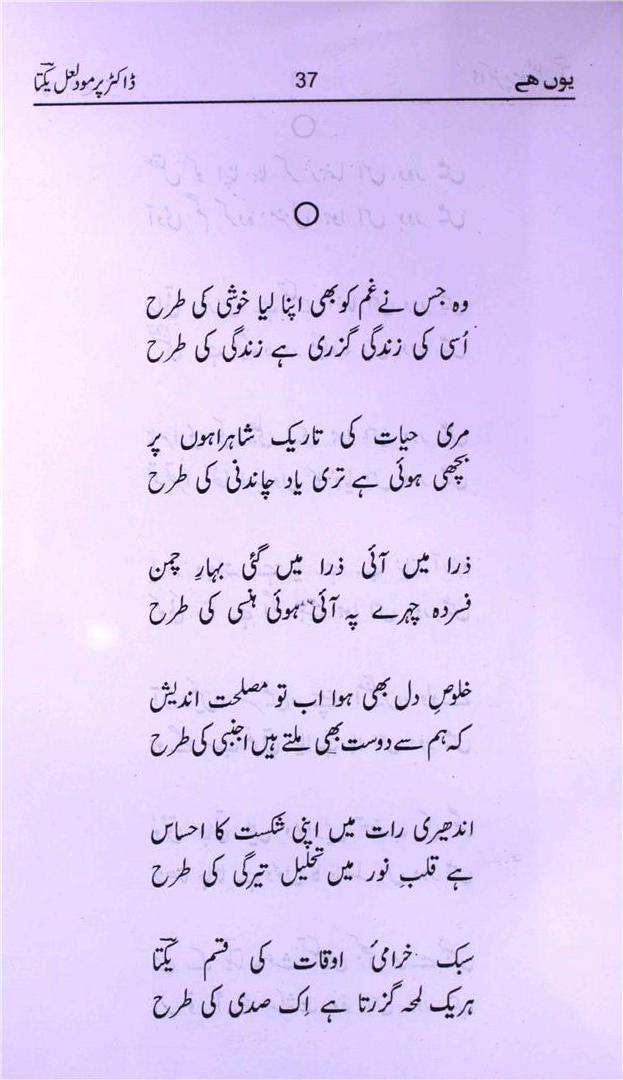 یوں ھے 37 ڈاکٹر پرمود لعل یکتاؔ
وہ جس نے غم کو بھی اپنا لیا خوشی کی طرح
اُسی کی زندگی گزری ہے زندگی کی طرح
مری حیات کی تاریک شاہراہوں پر
بچھی ہوئی ہے تری یاد چاندنی کی طرح
ذرا میں آئی ذرا میں گئی بہارِ چمن
فسردہ چہرے پہ آئی ہوئی ہنسی کی طرح
خلوصِ دل بھی ہوا اب تو مصلحت اندیش
کہ ہم سے دوست بھی ملتے ہیں اجنبی کی طرح
اندھیری رات میں اپنی شکست کا احساس
ہے قلبِ نور میں تحلیل تیرگی کی طرح
سبک خرامیٔ اوقات کی قسم یکتاؔ
ہر یک لمحہ گزرتا ہے اِک صدی کی طرح